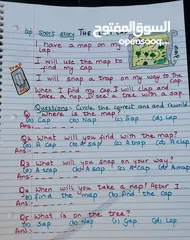 السوق المفتوح
opensooq.com
Short story The
I have a map on my
lap.
I will use the map to
find my cap.
I will snap a trap on my way to the
cap.
When I find my cap, I will clap and
take a nap. I like a tap with a sap.
Questions: Circle the correct ans and
Q1 Where is the map?
(a) Cap (b) Nap (c) Sap (d) Lap
Ans:
Q2 What will you find with the map?
(a) Cap (b) A sap (c) A trap (d) A clap
Ans:
Q3 What will you snap on your way?
(a) A cap (b) A sap (c) A nap (d) A trap
Ans:
Q4 When will you take a nap? After I
(a) find the map (b) find the cap
Ans:
Q5 What is on the tree?
(a) Sap (b) Nap (c) Gap (d) Lap